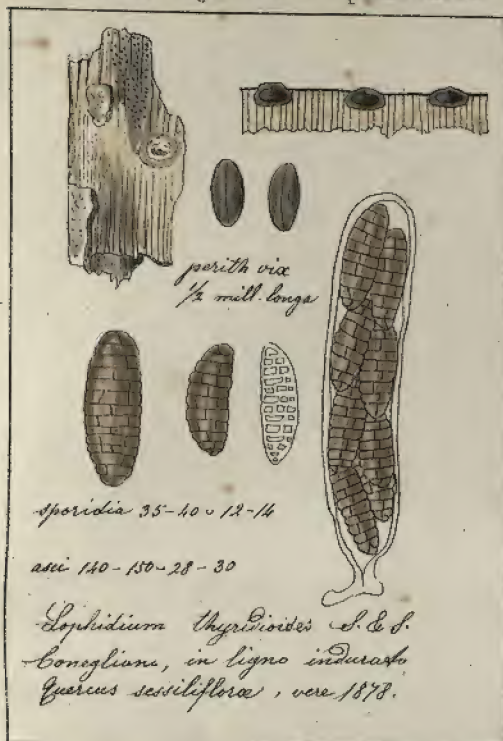 perith vix
1/2 mill. longa
sporidia 35-40 ⌣ 12-14
asci 140-150 ⌣ 28-30
Lophidium thyridioides S. & S.
Conegliani, in ligno indurato
Quercus sessiliflorae, vere 1878.